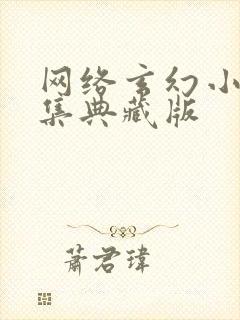 网络玄幻小
集典藏版
萧君玮